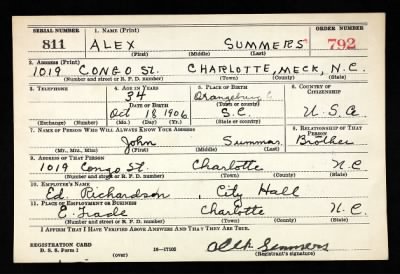 SERIAL NUMBER 1. NAME (Print) ORDER NUMBER
811 ALEX SUMMERS 792
(First) (Middle) (Last)
2. ADDRESS (Print)
1019 CONGO ST. CHARLOTTE, MECK, N.C.
(Number and street or R. F. D. number) (Town) (County) (State)
3. TELEPHONE 4. AGE IN YEARS 5. PLACE OF BIRTH 6. COUNTRY OF CITIZENSHIP
34 Orangeburg C
DATE OF BIRTH (Town or county)
Oct 18 1906 S.C. U.S.A.
(Exchange) (No.) (Mo.) (Day) (Yr.) (State or country)
7. NAME OF PERSON WHO WILL ALWAYS KNOW YOUR ADDRESS 8. RELATIONSHIP OF THAT PERSON
John Summers Brother
(Mr., Mrs., Miss) (First) (Middle) (Last)
9. ADDRESS OF THAT PERSON
1019 Congo St. Charlotte N C
(Number and street or R. F. D. number) (Town) (County) (State)
10. EMPLOYER'S NAME
Ed. Richardson, City Hall
11. PLACE OF EMPLOYMENT OR BUSINESS
E. Trade Charlotte N. C.
(Number and street or R. F. D. number) (Town) (County) (State)
I AFFIRM THAT I HAVE VERIFIED ABOVE ANSWERS AND THAT THEY ARE TRUE.
REGISTRATION CARD
D. S. S. Form 1 16—17105 Alex Summers
(over) (Registrant's signature)